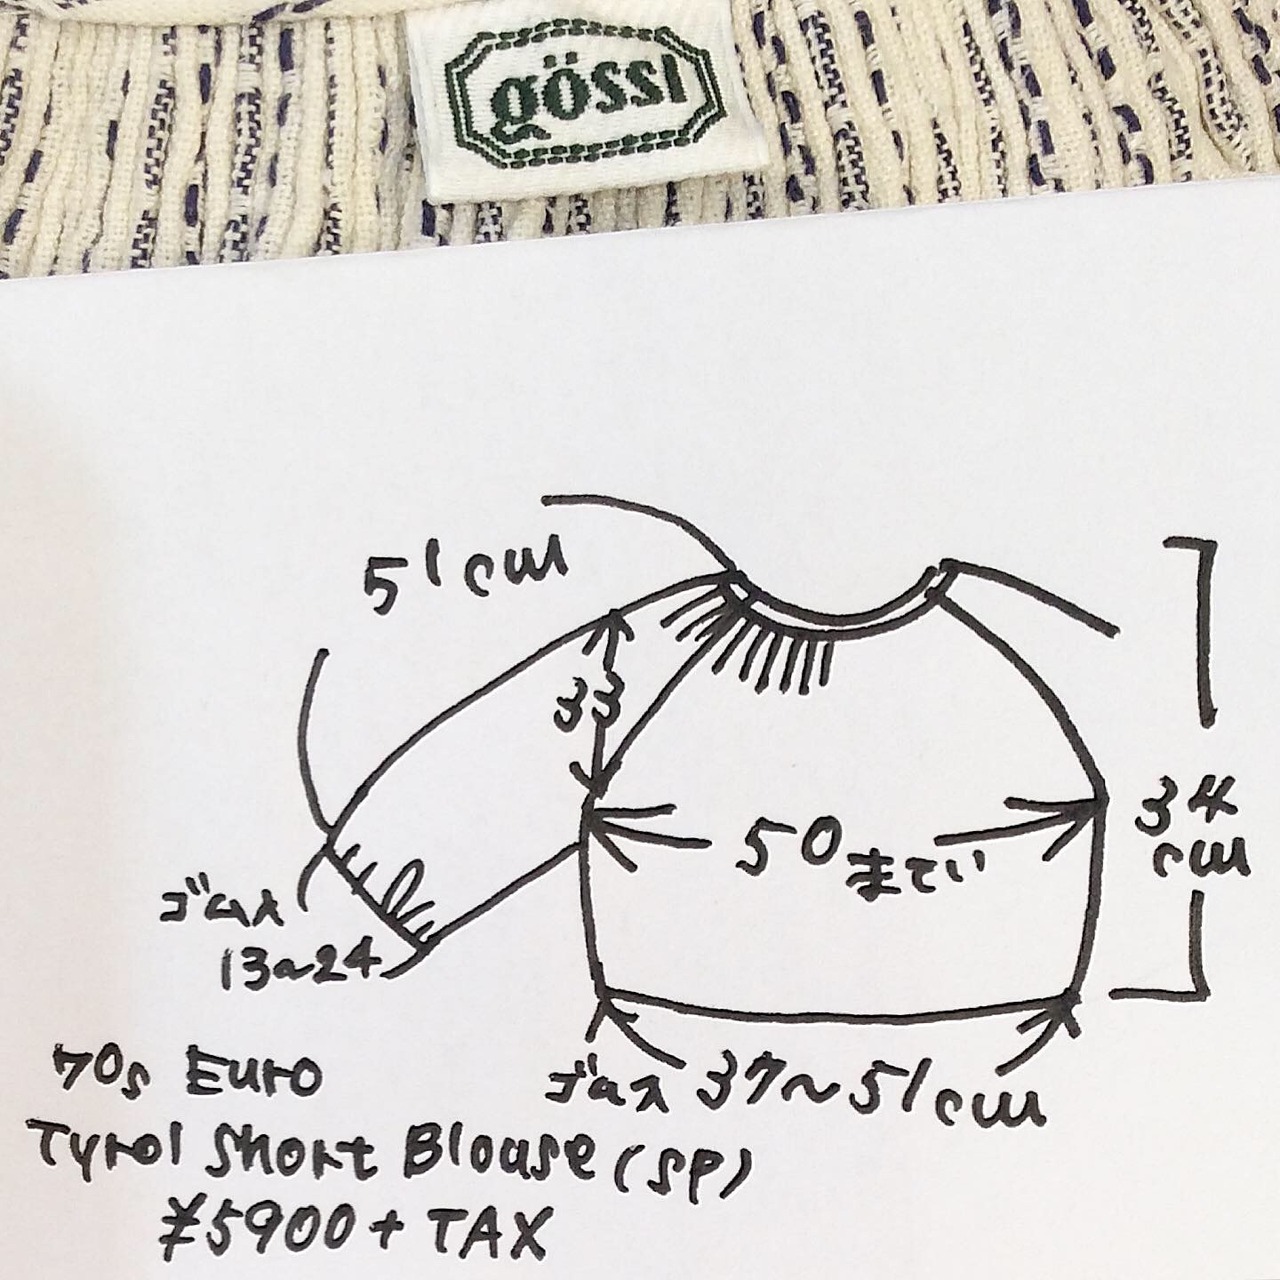 gössl
51cm
33
50まで
34
cm
ゴム入
13~24
ゴム入 37~51cm
70s Euro
Tyrol Short Blouse (SP)
¥5900+TAX